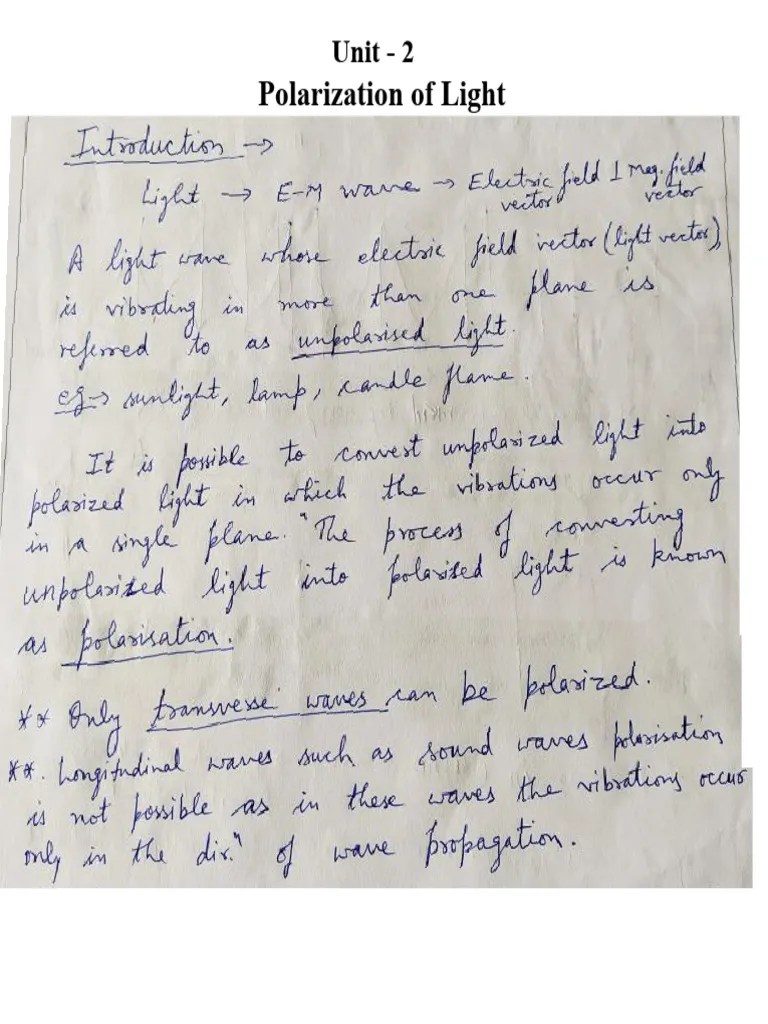 Unit - 2
Polarization of Light
Introduction →
Light → E-M wave → Electric field ⊥ Mag. field
vector vector
A light wave whose electric field vector (light vector),
is vibrating in more than one plane is
referred to as unpolarised light.
eg → sunlight, lamp, candle flame.
It is possible to convert unpolarized light into
polarized light in which the vibrations occur only
in a single plane. "The process of converting
unpolarized light into polarized light is known
as polarisation.
** Only transverse waves can be polarized.
**. Longitudinal waves such as sound waves polarisation
is not possible as in these waves the vibrations occur
only in the dir.ⁿ of wave propagation.